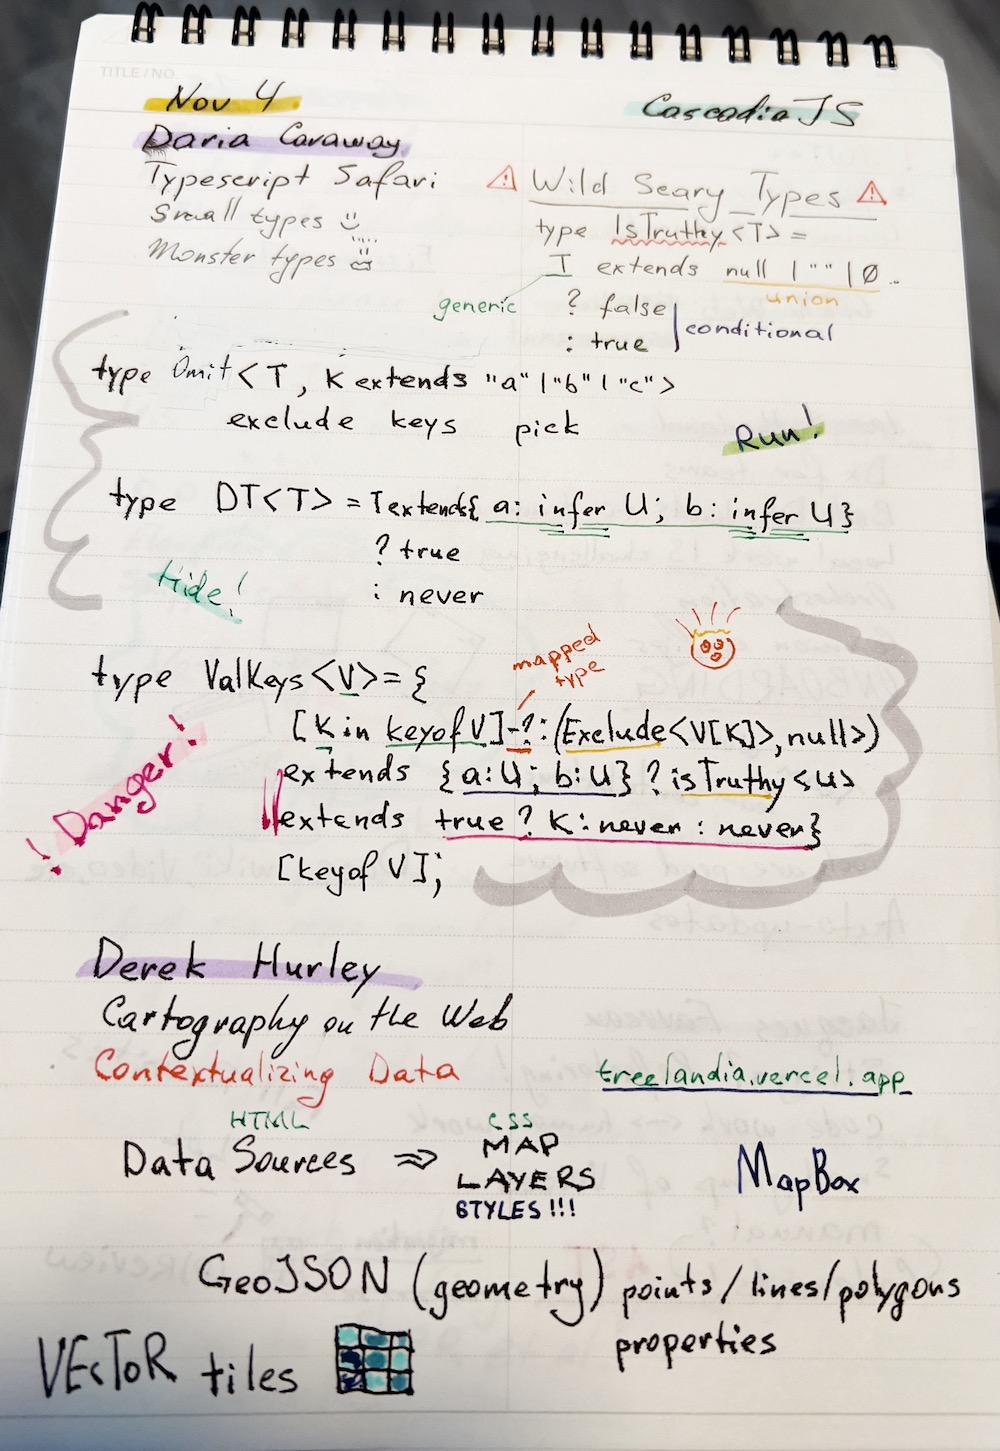 TITLE / NO.
Nov 4
CascadiaJS
Daria Caraway
Typescript Safari
Small types
Monster types
Wild Scary Types
type IsTruthy<T> =
T extends null | "" | 0
generic
union
? false
: true
conditional
type Omit<T, K extends "a" | "b" | "c">
exclude keys pick
Run!
type DT<T> = T extends{ a: infer U; b: infer U}
? true
: never
Hide!
mapped
type
type ValKeys<V>= {
[K in keyof V]-?:(Exclude<V[K]>,null>)
extends {a:U; b:U} ? isTruthy<u>
extends true? K:never : never}
[keyof V];
! Danger!
Derek Hurley
Cartography on the Web
Contextualizing Data
treelandia.vercel.app
HTML
CSS
Data Sources ⇒ MAP
LAYERS
STYLES!!!
MapBox
GeoJSON (geometry) points/lines/polygons
properties
VEcToR tiles